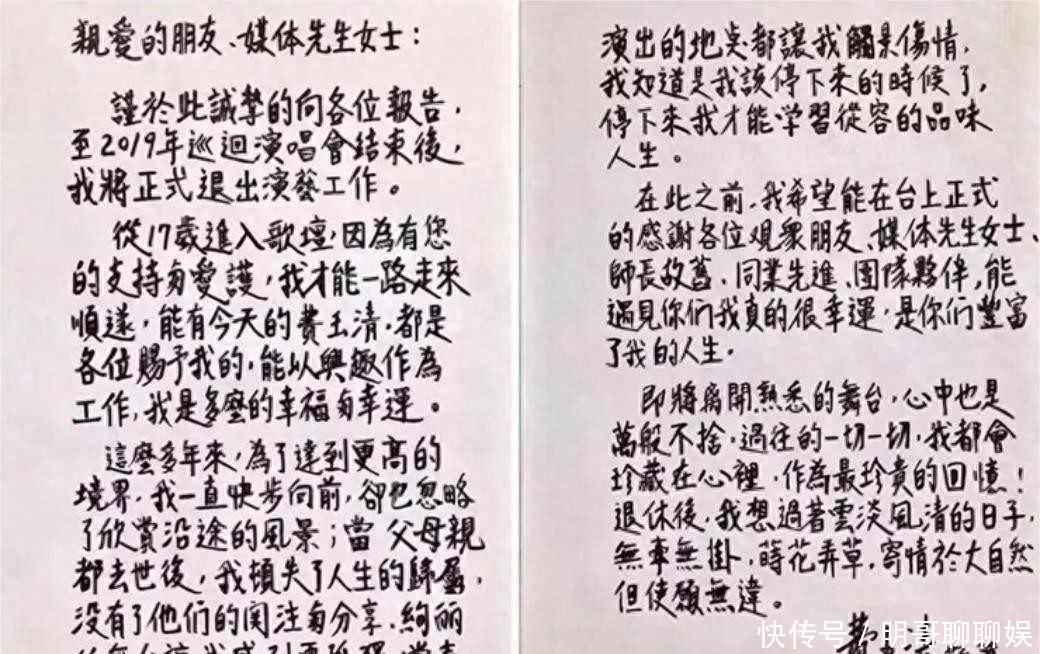 親愛的朋友、媒体先生女士：
謹於此誠摯的向各位報告，
至2019年巡迴演唱會結束後，
我將正式退出演藝工作。
從17歲進入歌壇，因為有您
的支持與愛護，我才能一路走來
順遂，能有今天的費玉清，都是
各位賜予我的，能以興趣作為
工作，我是多麼的幸福與幸運。
這麼多年來，為了達到更高的
境界，我一直快步向前，卻也忽略
了欣賞沿途的風景；當父母親
都去世後，我頓失了人生的歸屬，
没有了他們的関注與分享，絢麗
演出的地点都讓我觸景傷情，
我知道是我該停下來的時候了，
停下來我才能学習從容的品味
人生。
在此之前，我希望能在台上正式
的感謝各位观衆朋友、媒体先生女士、
師長故舊、同業先進、團隊夥伴，能
遇見你們我真的很幸運，是你們豐富
了我的人生。
即將離開熟悉的舞台，心中也是
萬般不捨，過往的一切一切，我都會
珍藏在心裡，作為最珍貴的回憶！
退休後，我想過著雲淡風清的日子，
無牽無掛，蒔花弄草，寄情於大自然
但使願無違。
快传号 / 明哥聊聊娱